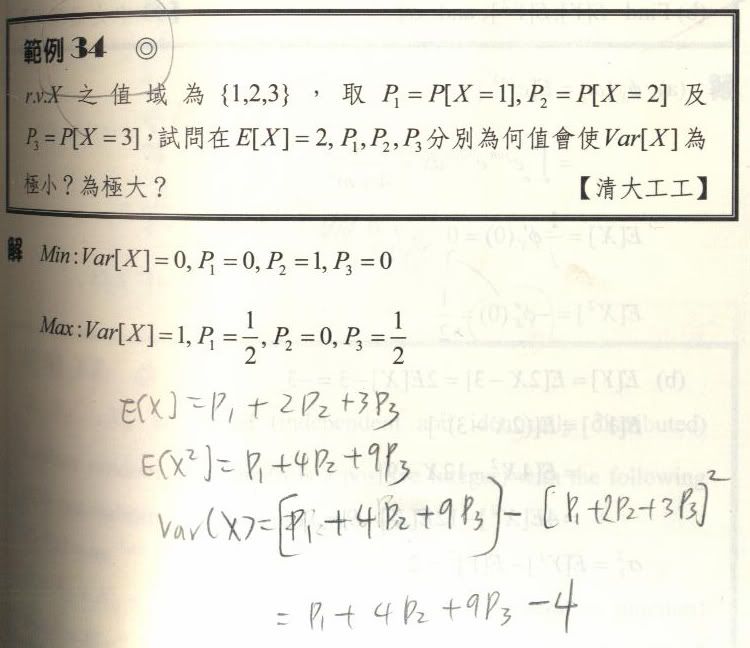 範例 34 ◎
r.v.X 之值域為 {1,2,3} ，取 P₁ = P[X = 1], P₂ = P[X = 2] 及
P₃ = P[X = 3]，試問在 E[X] = 2, P₁, P₂, P₃ 分別為何值會使 Var[X] 為
極小？為極大？ 【清大工工】
解 Min : Var[X] = 0, P₁ = 0, P₂ = 1, P₃ = 0
Max : Var[X] = 1, P₁ = 1/2, P₂ = 0, P₃ = 1/2
E(X) = P₁ + 2P₂ + 3P₃
E(X²) = P₁ + 4P₂ + 9P₃
Var(X) = [P₁ + 4P₂ + 9P₃] - [P₁ + 2P₂ + 3P₃]²
= P₁ + 4P₂ + 9P₃ - 4